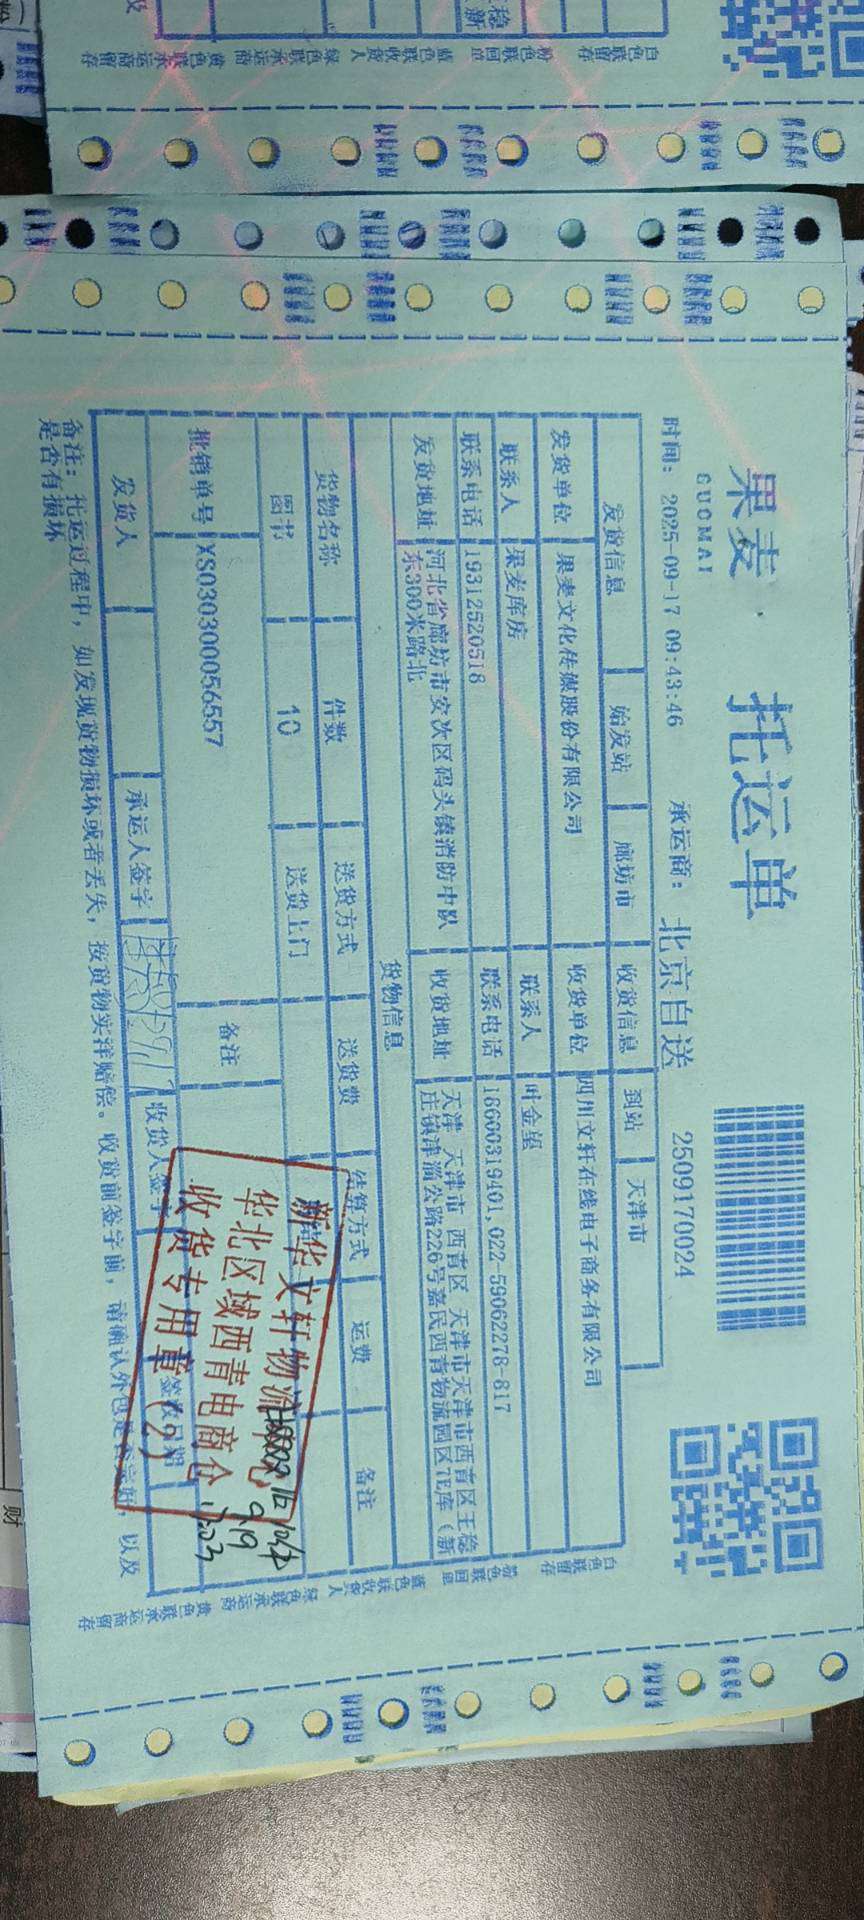 果麦 · 托运单
GUOMAI
时间: 2025-09-17 09:43:46 承运商: 北京自送 2509170024
发货信息 始发站 廊坊市 收货信息 到站 天津市
发货单位 果麦文化传媒股份有限公司 收货单位 四川文轩在线电子商务有限公司
联系人 果麦库房 联系人 叶金望
联系电话 19312520518 联系电话 18600319401,022-59062278-817
发货地址 河北省廊坊市安次区码头镇消防中队东300米路北 收货地址 天津 天津市 西青区 天津市天津市西青区王稳庄镇津淄公路226号嘉民西青物流园区7E库(新
货物信息
货物名称 件数 送货方式 送货费 结算方式 运费 备注
图书 10 送货上门
批销单号 XS030300056557 备注
发货人 承运人签字 收货人签字 签收日期
备注: 托运过程中, 如发现货物损坏或者丢失, 按货物实洋赔偿。收货前签字前, 请确认外包是否完好, 以及
是否有损坏
新华文轩物流
华北区域西青电商仓
收货专用章
(2)
9.19
白色联留存 粉色联回单 蓝色联收货人 绿色联承运商 黄色联承运商留存
白色联留存 粉色联回单 蓝色联收货人 绿色联承运商 黄色联承运商留存